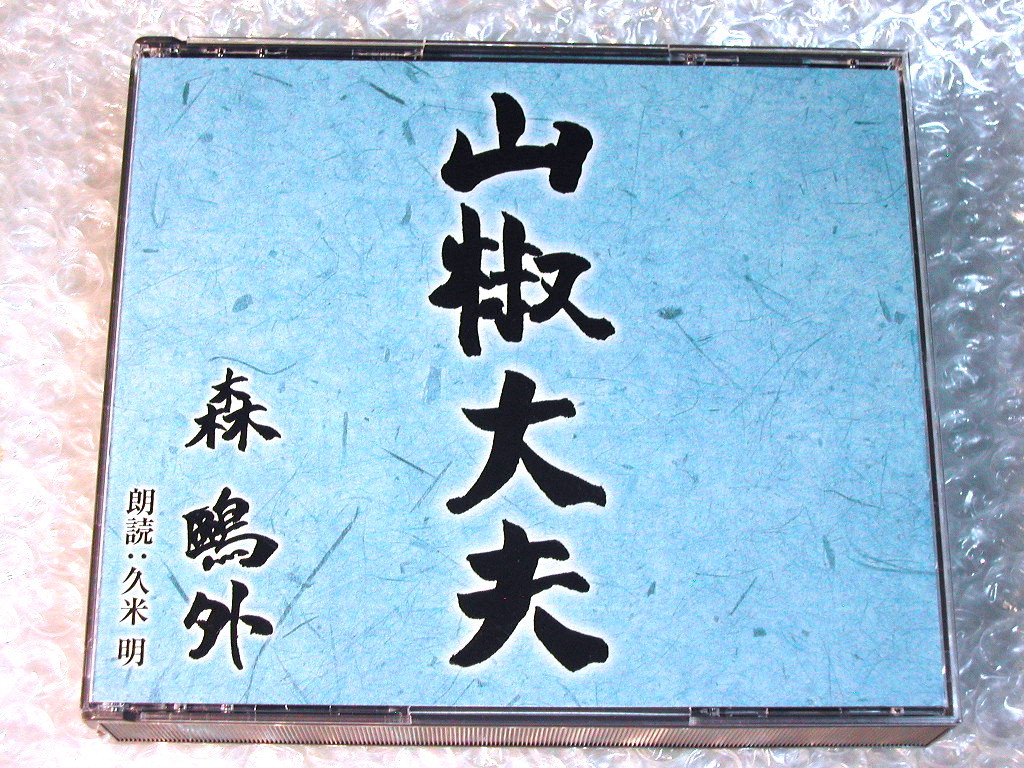 山椒大夫
森鷗外
朗読:久米 明